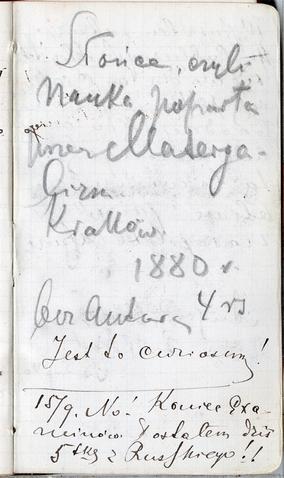 Słońce, czyli
Nauka poparta
przez Materya-
lizm
Kraków
1880 r.
bez Autora 4 rs
Jest to curiosum!
15/9. No! Koniec Exa-
minów Dostałem dziś
5tkę z Russkiego!!